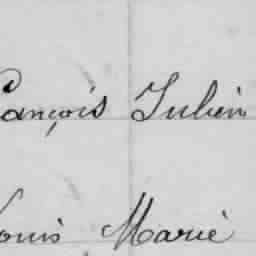 ançois Julien
ouis Marie